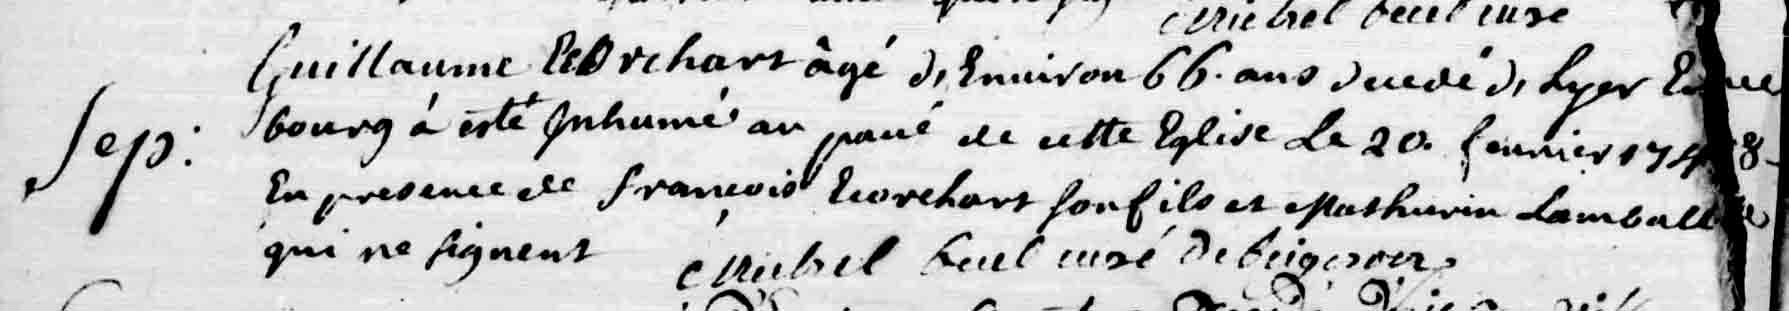 Michel curé
Guillaume Ecorchart âgé d, Environ 66. ans decedé d, hyer En ce
Sep: bourg á esté Inhumé au pavé de cette Eglise Le 20. fevrier 1748
En presence de francois Ecorchart son fils et Mathurin Lamballe
qui ne signent Michel curé de